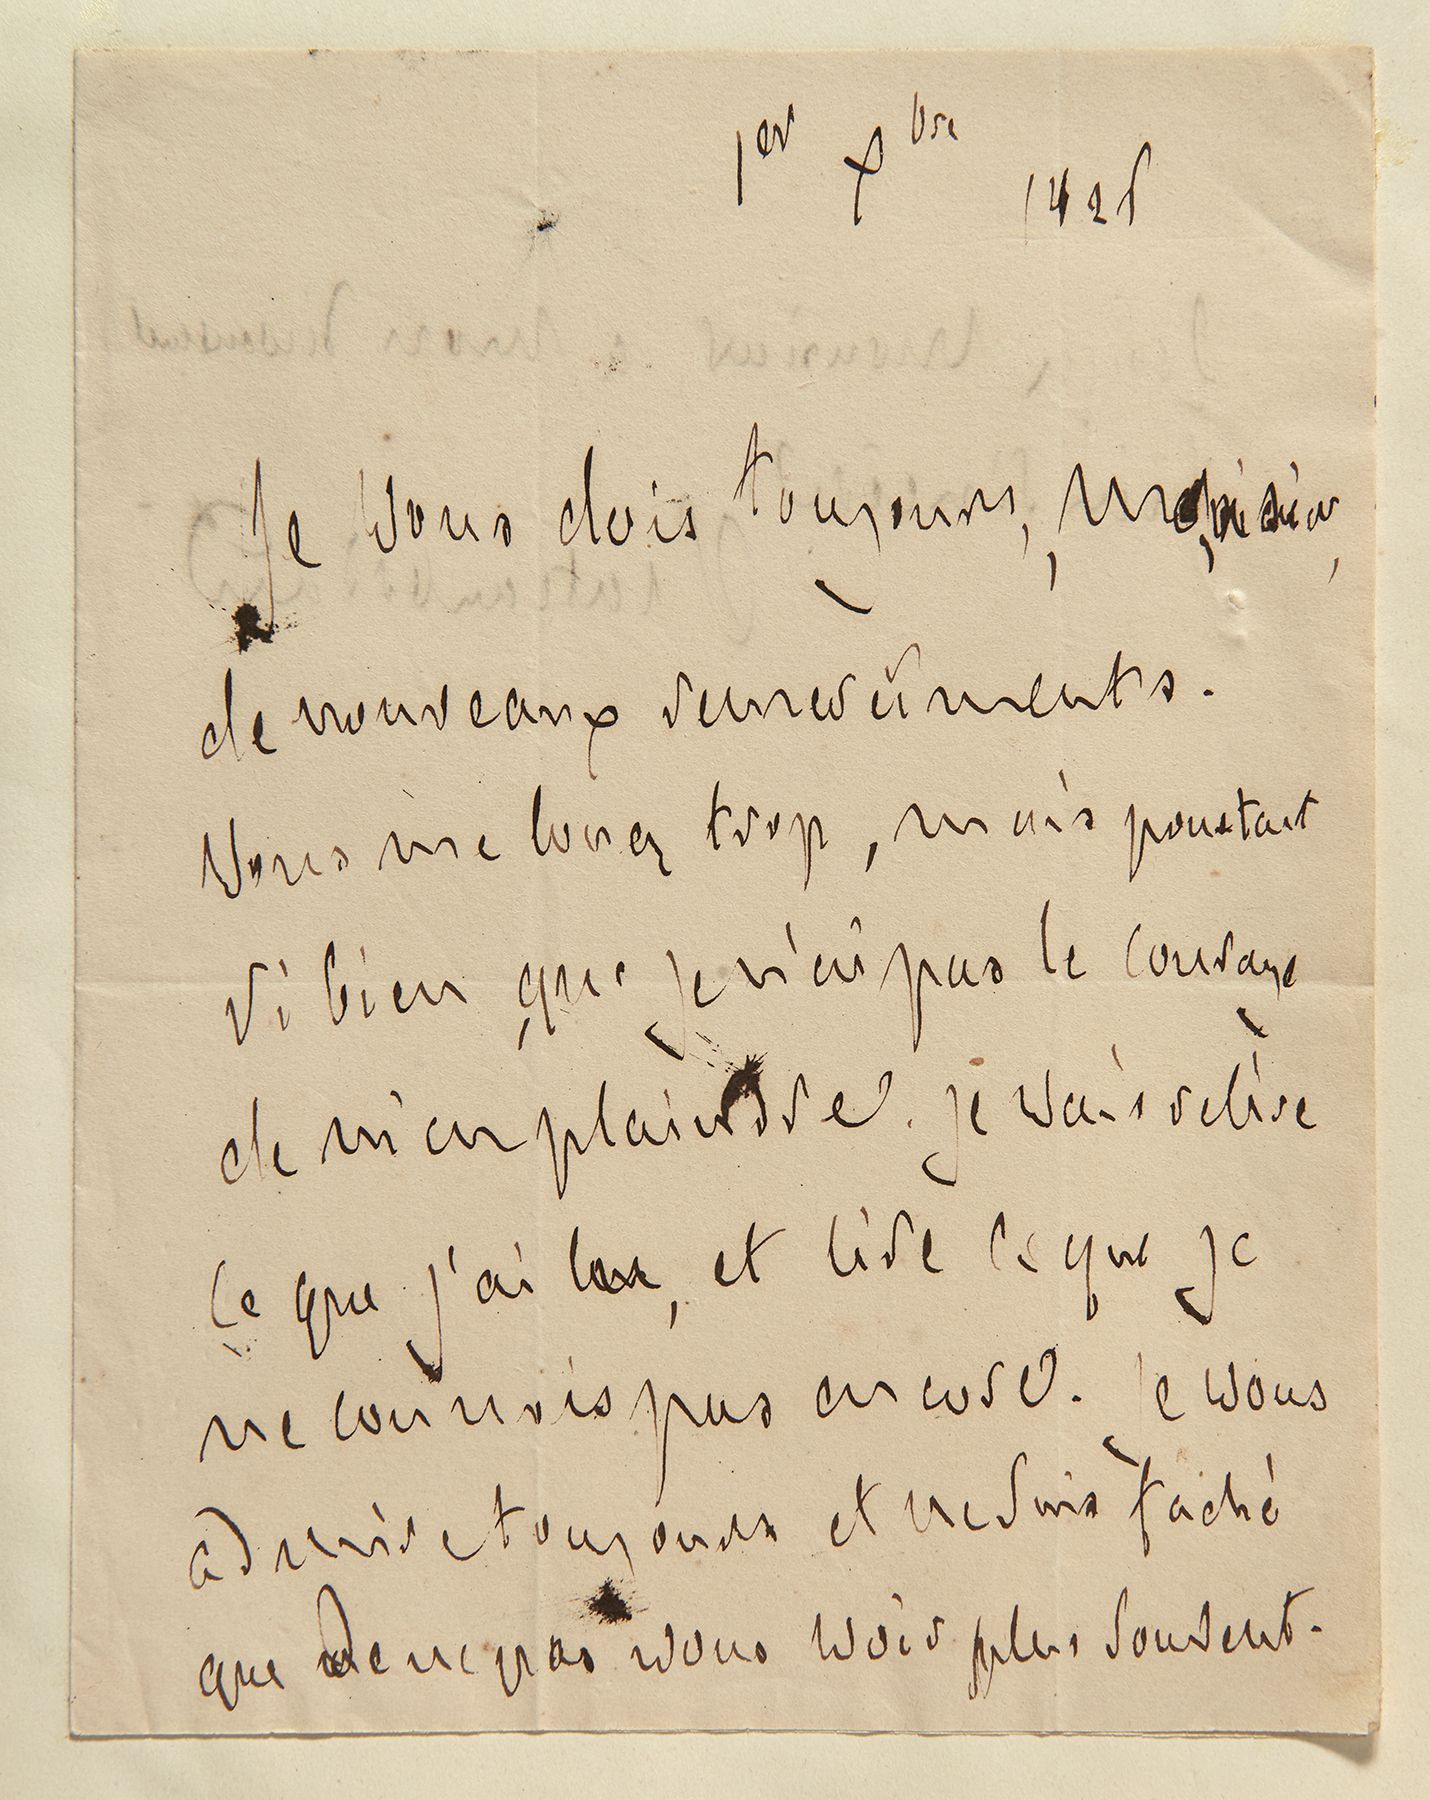 1er Xbre 1825
Je vous dois toujours, Monsieur,
de nouveaux remerciments.
Vous me louez trop, mais pourtant
si bien que je n'ai pas le courage
de m'en plaindre. je vais relire
ce que j'ai lu, et lire ce que je
ne connois pas encore. Je vous
admire toujours et ne suis faché
que de ne pas vous voir plus souvent.